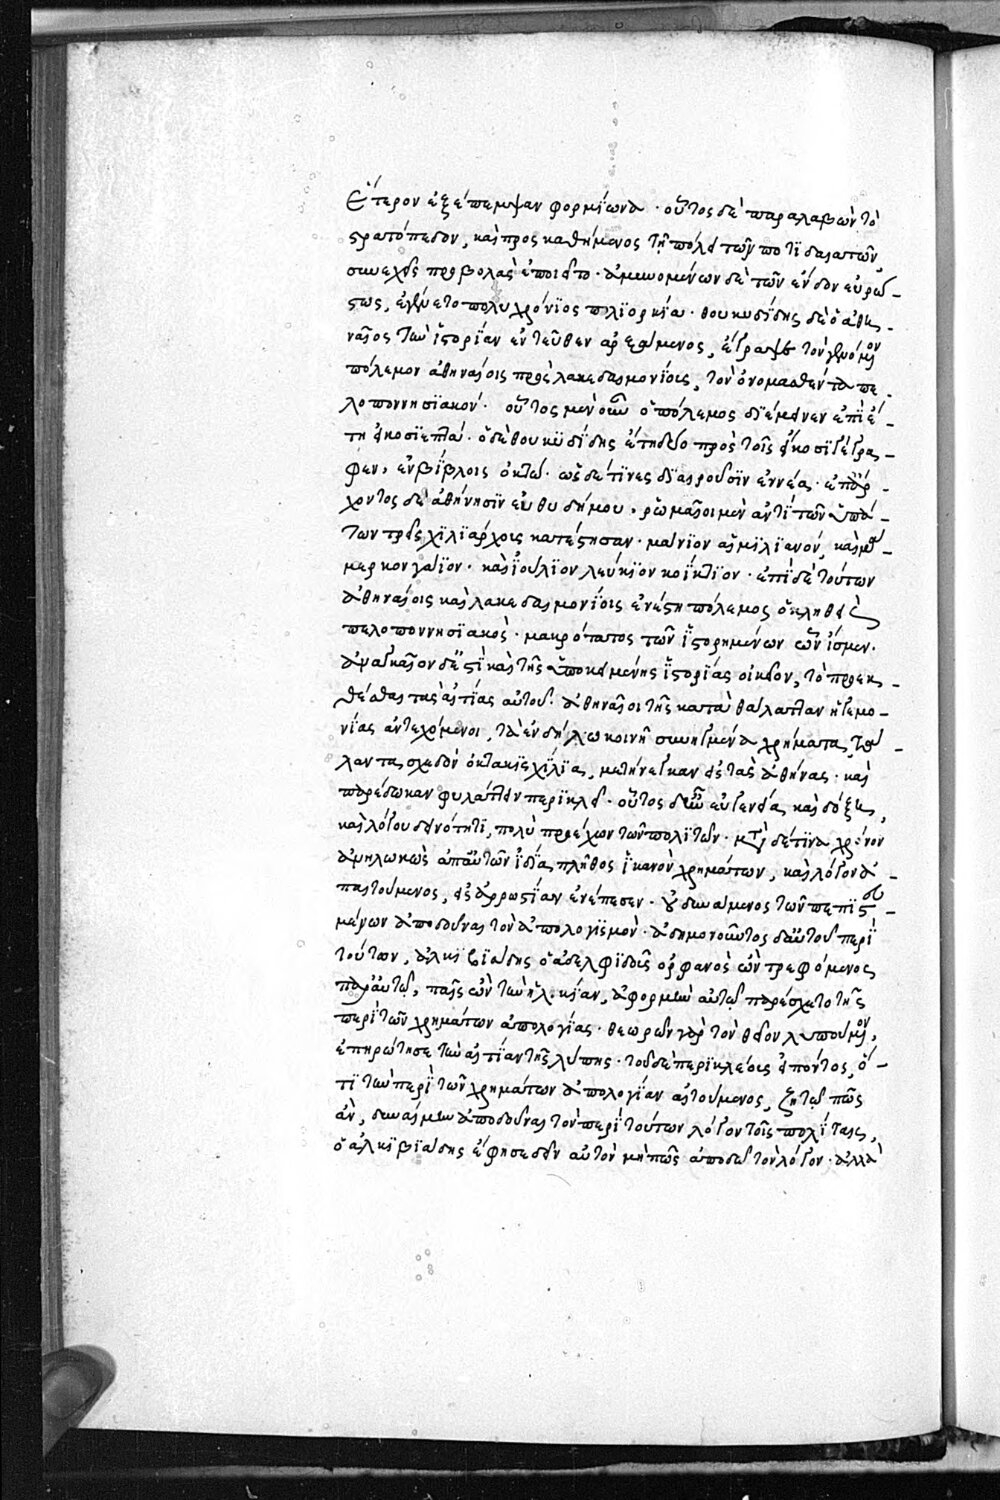 ἕτερον ἐξέπεμψαν φορμίωνα · οὗτος δὲ παραλαβὼν τὸ
στρατόπεδον, καὶ προσκαθήμενος τῇ πόλει τῶν ποτιδαιατῶν
συνεχεῖς προσβολὰς ἐποιεῖτο · ἀμυνομένων δὲ τῶν ἔνδον εὐρώ-
στως, ἐγένετο πολυχρόνιος πολιορκία · θουκυδίδης δὲ ὁ ἀθη-
ναῖος τὴν ἱστορίαν ἐντεῦθεν ἀρξάμενος, ἔγραψε τὸν γενόμενον
πόλεμον ἀθηναίοις πρὸς λακεδαιμονίοις, τὸν ὀνομασθέντα πε-
λοποννησιακόν · οὗτος μὲν οὖν ὁ πόλεμος διέμεινεν ἐπὶ ἔ-
τη εἰκοσιεπτά · ὁ δὲ θουκυδίδης ἔτη δύο πρὸς τοῖς εἴκοσι γέγρα-
φεν, ἐν βίβλοις ὀκτώ · ὡς δέ τινες διαιροῦσιν ἐννέα · ἐπ' ἄρ-
χοντος δὲ ἀθήνησιν εὐθυδήμου · ῥωμαῖοι μὲν ἀντὶ τῶν ὑπά-
των τρεῖς χιλιάρχοις κατέστησαν · μάνιον αἰμιλιανόν, καὶ μα-
μερκον γαῖον · καὶ ἰούλιον λεύκιον κοίκτιον · ἐπὶ δὲ τούτων
ἀθηναίοις καὶ λακεδαιμονίοις ἐνέστη πόλεμος ὁ κληθεὶς
πελοποννησιακὸς · μακρότατος τῶν ἱστορημένων ὧν ἴσμεν ·
ἀναγκαῖον δ' ἐστὶ καὶ τῆς ὑποκειμένης ἱστορίας οἰκεῖον, τὸ προεκ-
θέσθαι τὰς αἰτίας αὐτοῦ · ἀθηναῖοι τῆς κατὰ θάλατταν ἡγεμο-
νίας ἀντεχόμενοι, τὰ ἐν δήλω κοινῇ συνηγμένα χρήματα, τα-
λαντας σχεδὸν ὀκτακισχίλια, μετήνεγκαν εἰς τὰς ἀθήνας · καὶ
παρέδωκαν φυλάττειν περικλεῖ · οὗτος δ' ἦν εὐγενείᾳ καὶ δόξῃ,
καὶ λόγου δεινότητι, πολὺ προέχων τῶν πολιτῶν · μετὰ δέ τινα χρόνον
ἀνηλωκὼς ἀπ' αὐτῶν ἰδίᾳ πλῆθος ἱκανὸν χρημάτων, καὶ λόγον ἀ-
παιτούμενος, εἰς ἀρρωστίαν ἐνέπεσεν · οὐ δυνάμενος τῶν πεπιστευ-
μένων ἀποδοῦναι τὸν ἀπολογισμόν · ἀδημονοῦντος δ' αὐτοῦ περὶ
τούτων, ἀλκιβιάδης ὁ ἀδελφιδοῦς ὀρφανὸς ὢν τρεφόμενος
παρ' αὐτῷ, παῖς ὢν τὴν ἡλικίαν, ἀφορμὴν αὐτῷ παρέσχετο τῆς
περὶ τῶν χρημάτων ἀπολογίας · θεωρῶν γὰρ τὸν θεῖον λυπούμενον,
ἐπηρώτησε τὴν αἰτίαν τῆς λύπης · τοῦ δὲ περικλέους εἰπόντος, ὅ-
τι τὴν περὶ τῶν χρημάτων ἀπολογίαν αἰτούμενος, ζητῶ πῶς
ἂν, δυναίμην ἀποδοῦναι τὸν περὶ τούτων λόγον τοῖς πολίταις,
ὁ ἀλκιβιάδης ἔφησε δεῖν αὐτὸν μὴ πῶς ἀποδῷ τὸν λόγον · ἀλλὰ